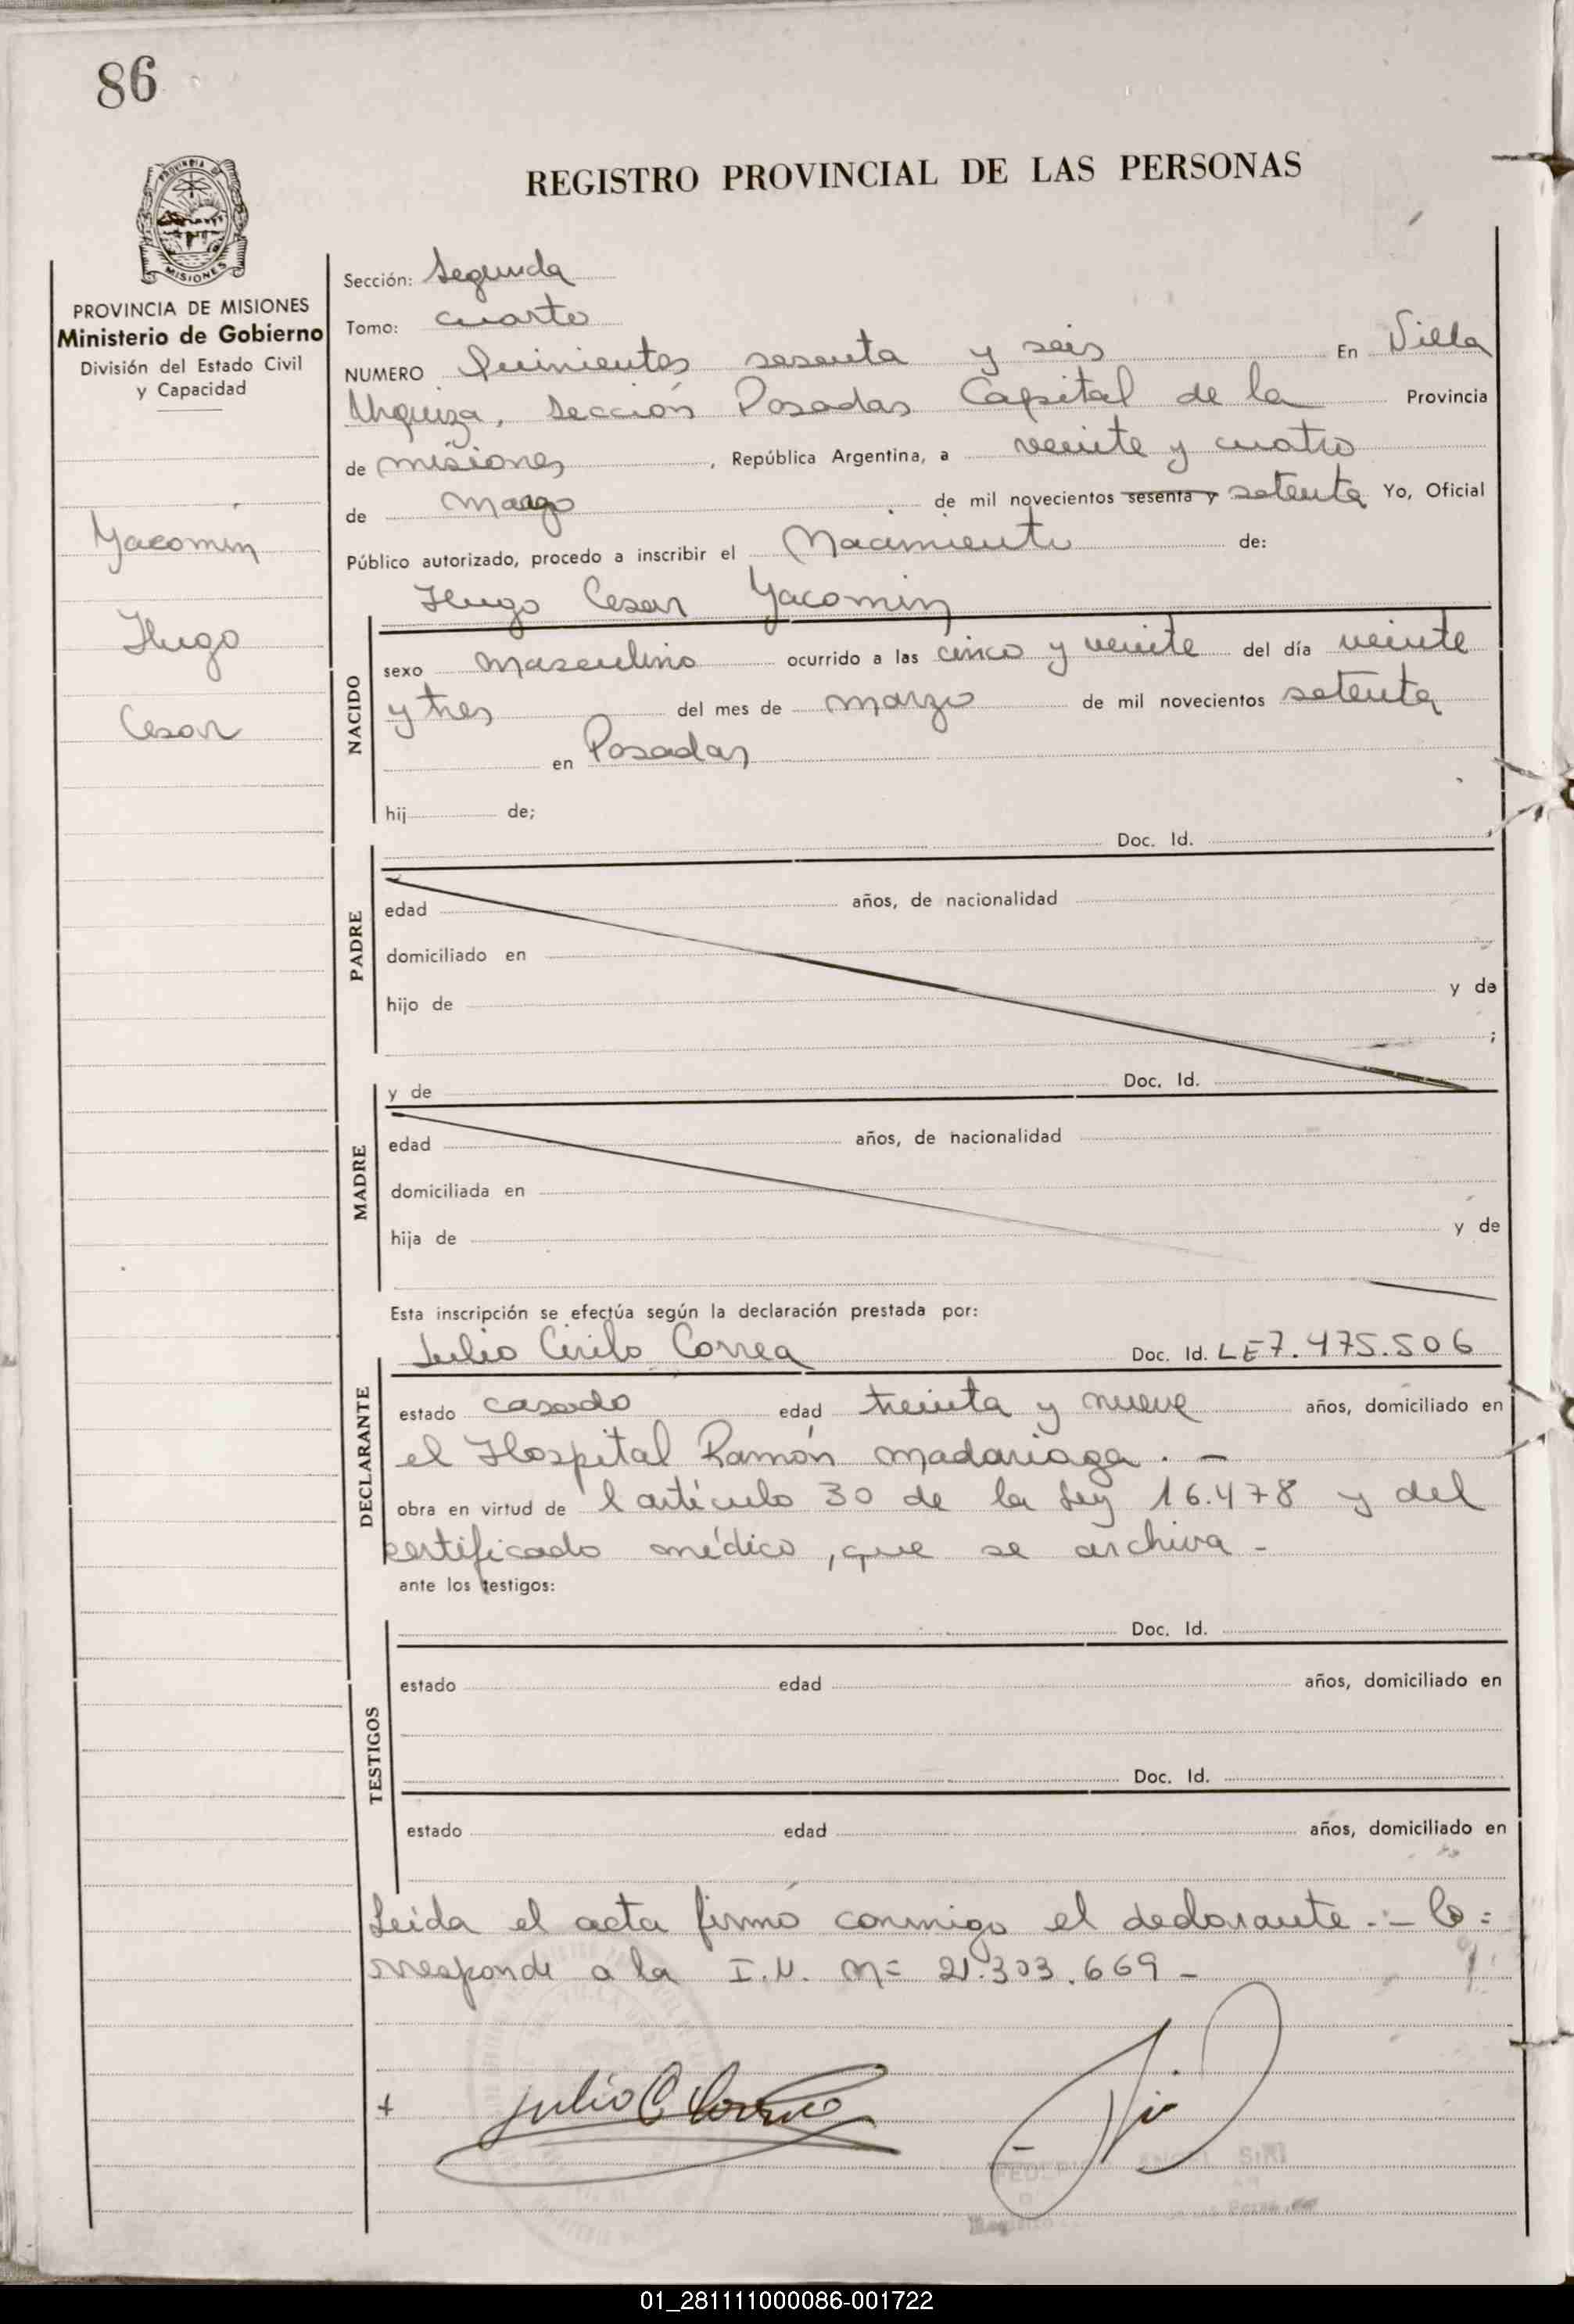 86
PROVINCIA DE
MISIONES
REGISTRO PROVINCIAL DE LAS PERSONAS
PROVINCIA DE MISIONES
Ministerio de Gobierno
División del Estado Civil
y Capacidad
Yacomin
Hugo
Cesar
Sección: Segunda
Tomo: cuarto
NUMERO Quinientos sesenta y seis En Villa
Urquiza, Sección Posadas Capital de la Provincia
de misiones, República Argentina, a veinte y cuatro
de marzo de mil novecientos sesenta y setenta Yo, Oficial
Público autorizado, procedo a inscribir el Nacimiento de:
Hugo Cesar Yacomin
NACIDO
sexo masculino ocurrido a las cinco y veinte del día veinte
y tres del mes de marzo de mil novecientos setenta
en Posadas
hij de;
Doc. Id.
PADRE
edad años, de nacionalidad
domiciliado en
hijo de y de
;
y de Doc. Id.
MADRE
edad años, de nacionalidad
domiciliada en
hija de y de
Esta inscripción se efectúa según la declaración prestada por:
Julio Cirilo Correa Doc. Id. LE 7.475.506
DECLARANTE
estado casado edad treinta y nueve años, domiciliado en
el Hospital Ramón madariaga. -
obra en virtud de l artículo 30 de la Ley 16.478 y del
certificado médico, que se archiva -
ante los testigos:
Doc. Id.
TESTIGOS
estado edad años, domiciliado en
Doc. Id.
estado edad años, domiciliado en
Leída el acta firmó conmigo el declarante.- Co=
rresponde a la I.N. N= 21.303.669 -
Julio C Correa
SIRI
01_281111000086-001722